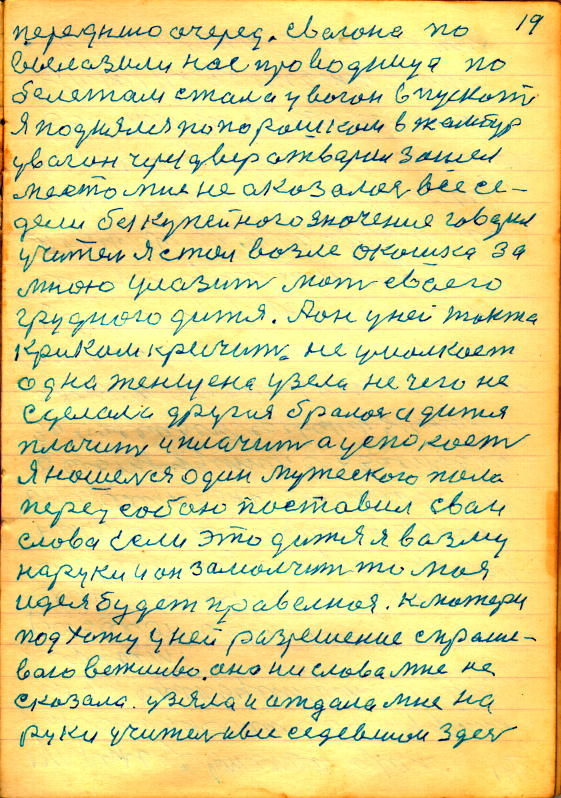 19
переднию очеред. свагона по
вылазили нас проводница по
белетам стала увогон впускать
я поднялся по порошкам в тамбур
увагон через двер отварил зашел
место мне не оказалося все се-
дели без купейного значение говорил
учител я стал возле окошка за
мною улазит мат своего
грудного дитя. Аон уней так та
криком кричит. не умолкает
одна женщена узела не чего не
сделала другия бралася дитя
плачит и плачит а успокоет
я нашелся один мужеского пола
перед собою поставил сваи
слова если это дитя я вазму
наруки и он замолчит то моя
идея будет правелная. к матери
подхожу уней разрешение спраше-
ваю вежливо. она ни слова мне не
сказала. узяла и отдала мне на
руки учител и все седевшии здес